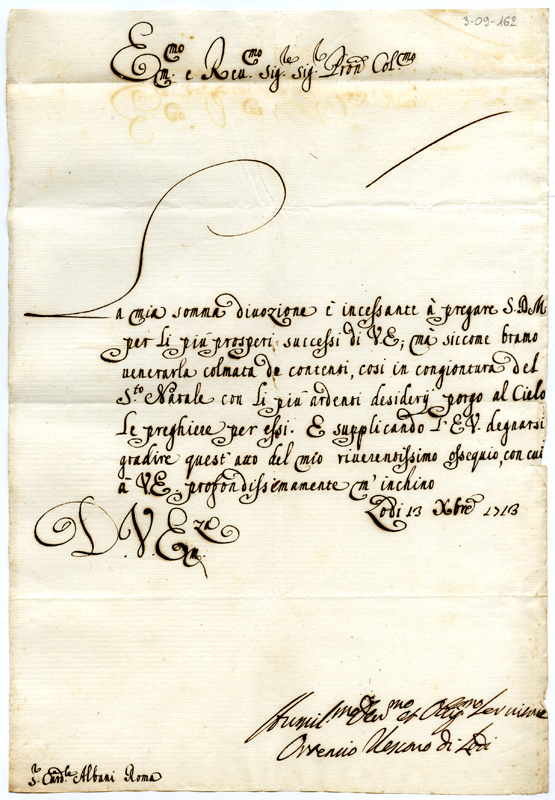 3-09-162
Em.mo e Reu.mo Sig.re Sig.r Pron Col.mo
La mia somma diuozione è incessante à pregare S.D.M
per li più prosperi successi di V.E; mà siccome bramo
venerarla colmata de contenti, così in congiontura del
S.to Natale con li più ardenti desiderij porgo al Cielo
le preghiere per essi. E supplicando l'E.V. degnarsi
gradire quest'atto del mio riuerentissimo ossequio, con cui
a V.E. profondissimamente m'inchino
Lodi 13 Xbre 1713
D.V.Em.za
Humil.mo Deu.mo et Oblig.mo Seruitore
Ortensio Vescouo di Lodi
S.r Card.le Albani Roma